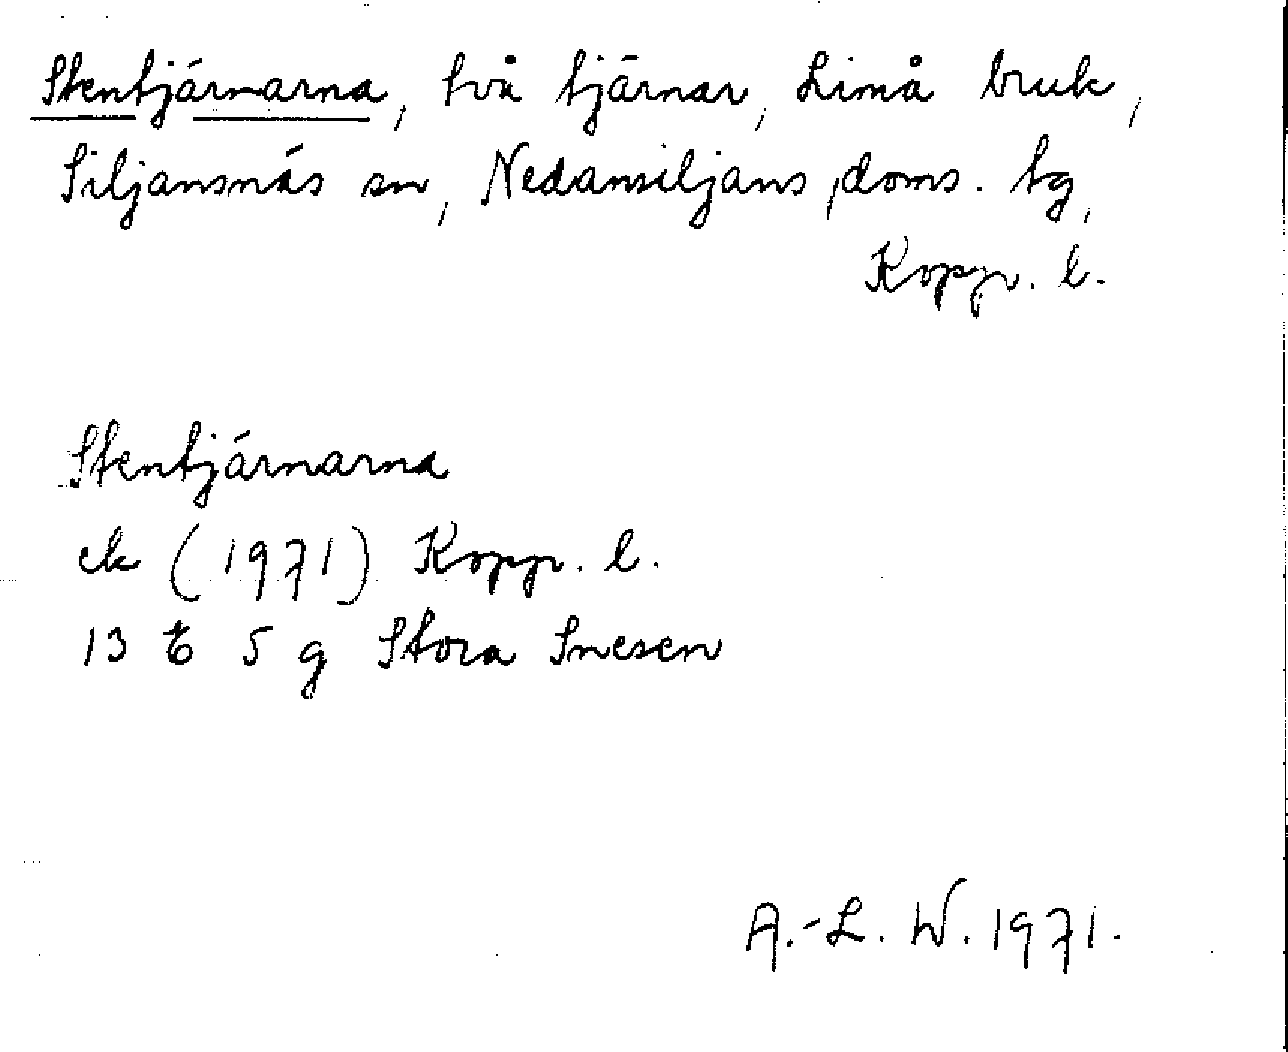 Stentjärnarna, två tjärnar, Limå bruk,
Siljansnäs sn, Nedansiljans doms. tg,
Kopp. l.
Stentjärnarna
ek (1971) Kopp. l.
13 E 5 g Stora Snesen
A.-L. W. 1971.